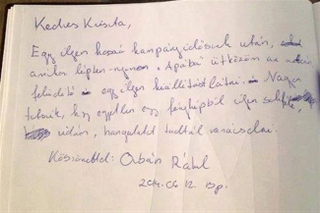 Kedves Kriszta,
Egy ilyen hosszú kampányidőszak után,
amikor lépten-nyomon ütközöm az
felüdítő egy ilyen kiállítást látni. Nagyon
tetszik, hogy egyetlen egy fényképből ilyen
után, hangulatot tudtál varázsolni.
Köszönettel: Orbán Ráhel
2014. 06. 12.